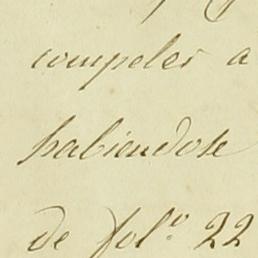 compeler a
habiendose
de fol.º 22